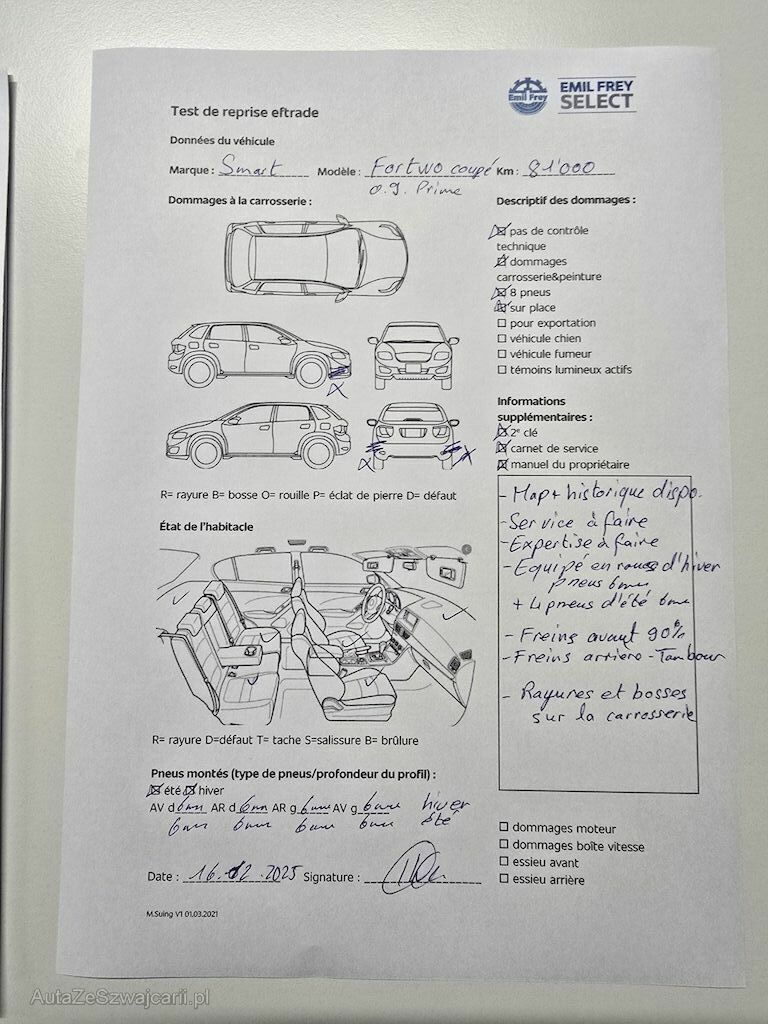 Emil Frey
EMIL FREY
SELECT
Test de reprise eftrade
Données du véhicule
Marque : Smart Modèle : Fortwo coupé Km : 81'000
0.9. Prime
Dommages à la carrosserie :
Descriptif des dommages :
pas de contrôle
technique
dommages
carrosserie&peinture
8 pneus
sur place
pour exportation
véhicule chien
véhicule fumeur
témoins lumineux actifs
Informations
supplémentaires :
2ᵉ clé
carnet de service
manuel du propriétaire
R= rayure B= bosse O= rouille P= éclat de pierre D= défaut
- Map + historique dispo.
- Service à faire
- Expertise à faire
- Equipé en roues d'hiver
pneus 6mm
+ 4 pneus d'été 6mm
- Freins avant 90%
- Freins arriere - Tambour
- Rayures et bosses
sur la carrosserie
État de l'habitacle
R= rayure D=défaut T= tache S=salissure B= brûlure
Pneus montés (type de pneus/profondeur du profil) :
été hiver
AV d 6mm AR d 6mm AR g 6mm AV g 6mm hiver
6mm 6mm 6mm 6mm été
dommages moteur
dommages boîte vitesse
essieu avant
essieu arrière
Date : 16.02.2025 Signature :
M.Suing V1 01.03.2021
AutaZeSzwajcarii.pl